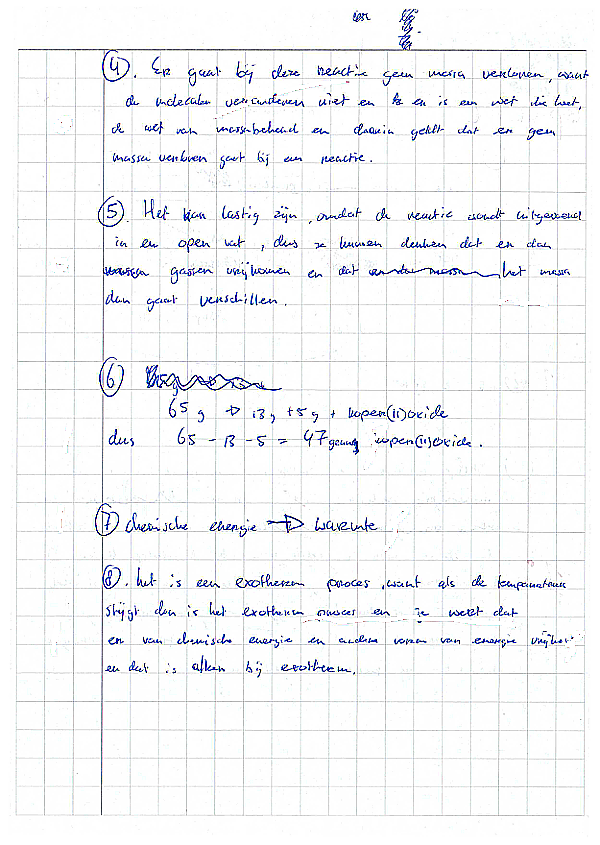 ④. Er gaat bij deze reactie geen massa verloren, want
de moleculen veranderen niet en er is een wet die heet,
de wet van massabehoud en daarin geldt dat er geen
massa verloren gaat bij een reactie.
⑤. Het kan lastig zijn, omdat de reactie wordt uitgevoerd
in en open vat, dus je kunnen denken dat er dan
gassen vrijkomen en dat het massa
dan gaat verschillen.
⑥
65 g → 13 g + 5 g + koper(II)oxide
dus 65 - 13 - 5 = 47 koper(II)oxide.
⑦ chemische energie → warmte
⑧. het is een exotherm proces, want als de temperatuur
stijgt dan is het exotherm proces en je weet dat
er van chemische energie en andere vormen van energie
en dat is alleen bij exotherm.